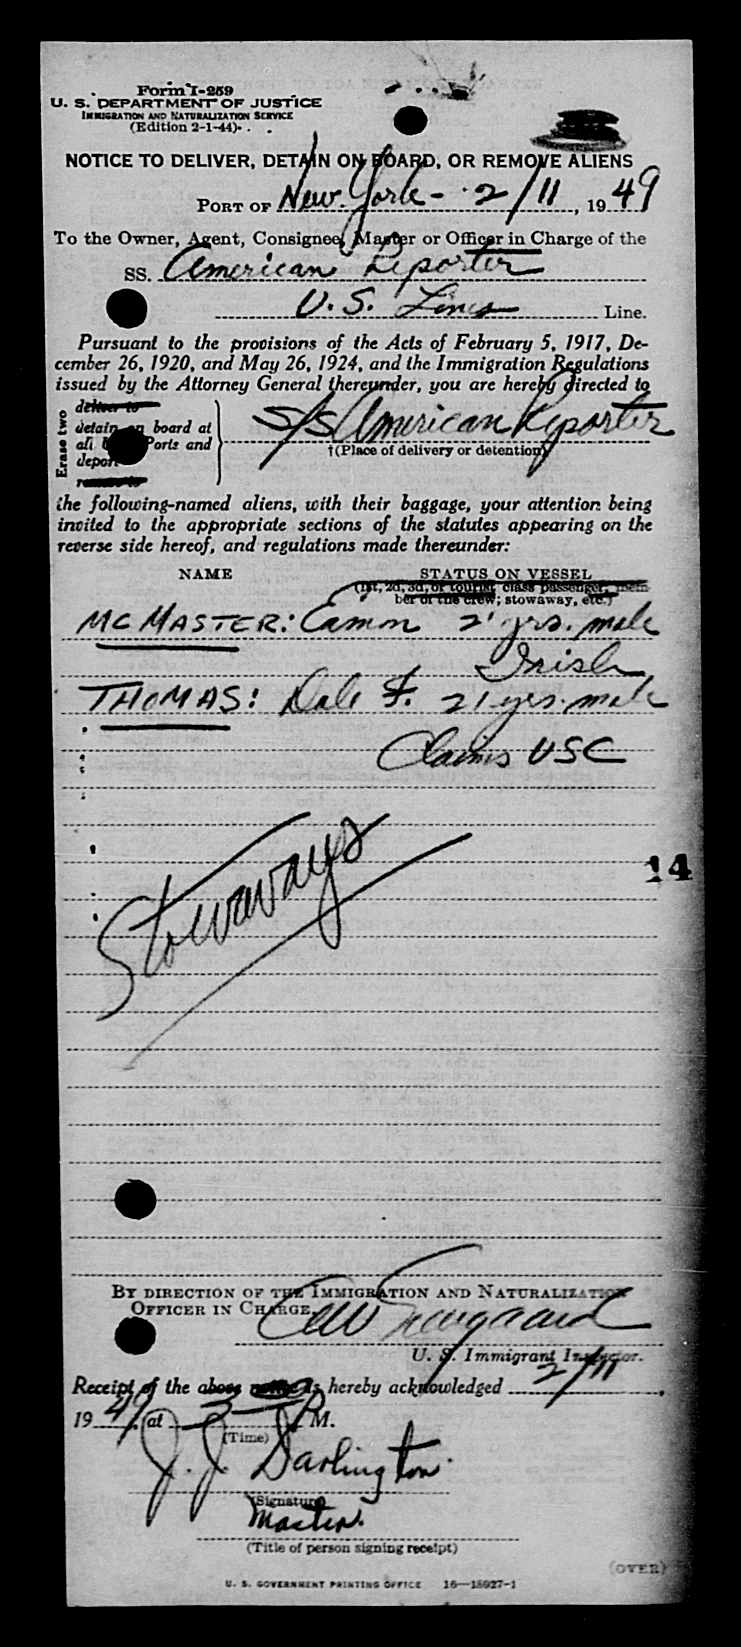 Form I-259
U. S. DEPARTMENT OF JUSTICE
IMMIGRATION AND NATURALIZATION SERVICE
(Edition 2-1-44)
NOTICE TO DELIVER, DETAIN ON BOARD, OR REMOVE ALIENS
PORT OF New York - 2/11, 1949
To the Owner, Agent, Consignee, Master or Officer in Charge of the
SS. American Reporter
U.S. Lines Line.
Pursuant to the provisions of the Acts of February 5, 1917, De-
cember 26, 1920, and May 26, 1924, and the Immigration Regulations
issued by the Attorney General thereunder, you are hereby directed to
Erase two
deliver to
detain on board at
all Ports and
deport
S/S American Reporter
†(Place of delivery or detention)
the following-named aliens, with their baggage, your attention being
invited to the appropriate sections of the statutes appearing on the
reverse side hereof, and regulations made thereunder:
NAME STATUS ON VESSEL
(1st, 2d, 3d, or tourist class passenger, mem-
ber of the crew; stowaway, etc.)
MCMASTER: Eamon 2 yrs. male
Irish
THOMAS: Dale F. 21 yrs. male
Claims USC
Stowaways
14
BY DIRECTION OF THE IMMIGRATION AND NATURALIZATION
OFFICER IN CHARGE.
U. S. Immigrant Inspector.
Receipt of the above notice is hereby acknowledged 2/11,
1949, at 3 P M.
(Time)
J. J. Darlington
(Signature)
Master.
(Title of person signing receipt)
(OVER)
U. S. GOVERNMENT PRINTING OFFICE 16—18927-1